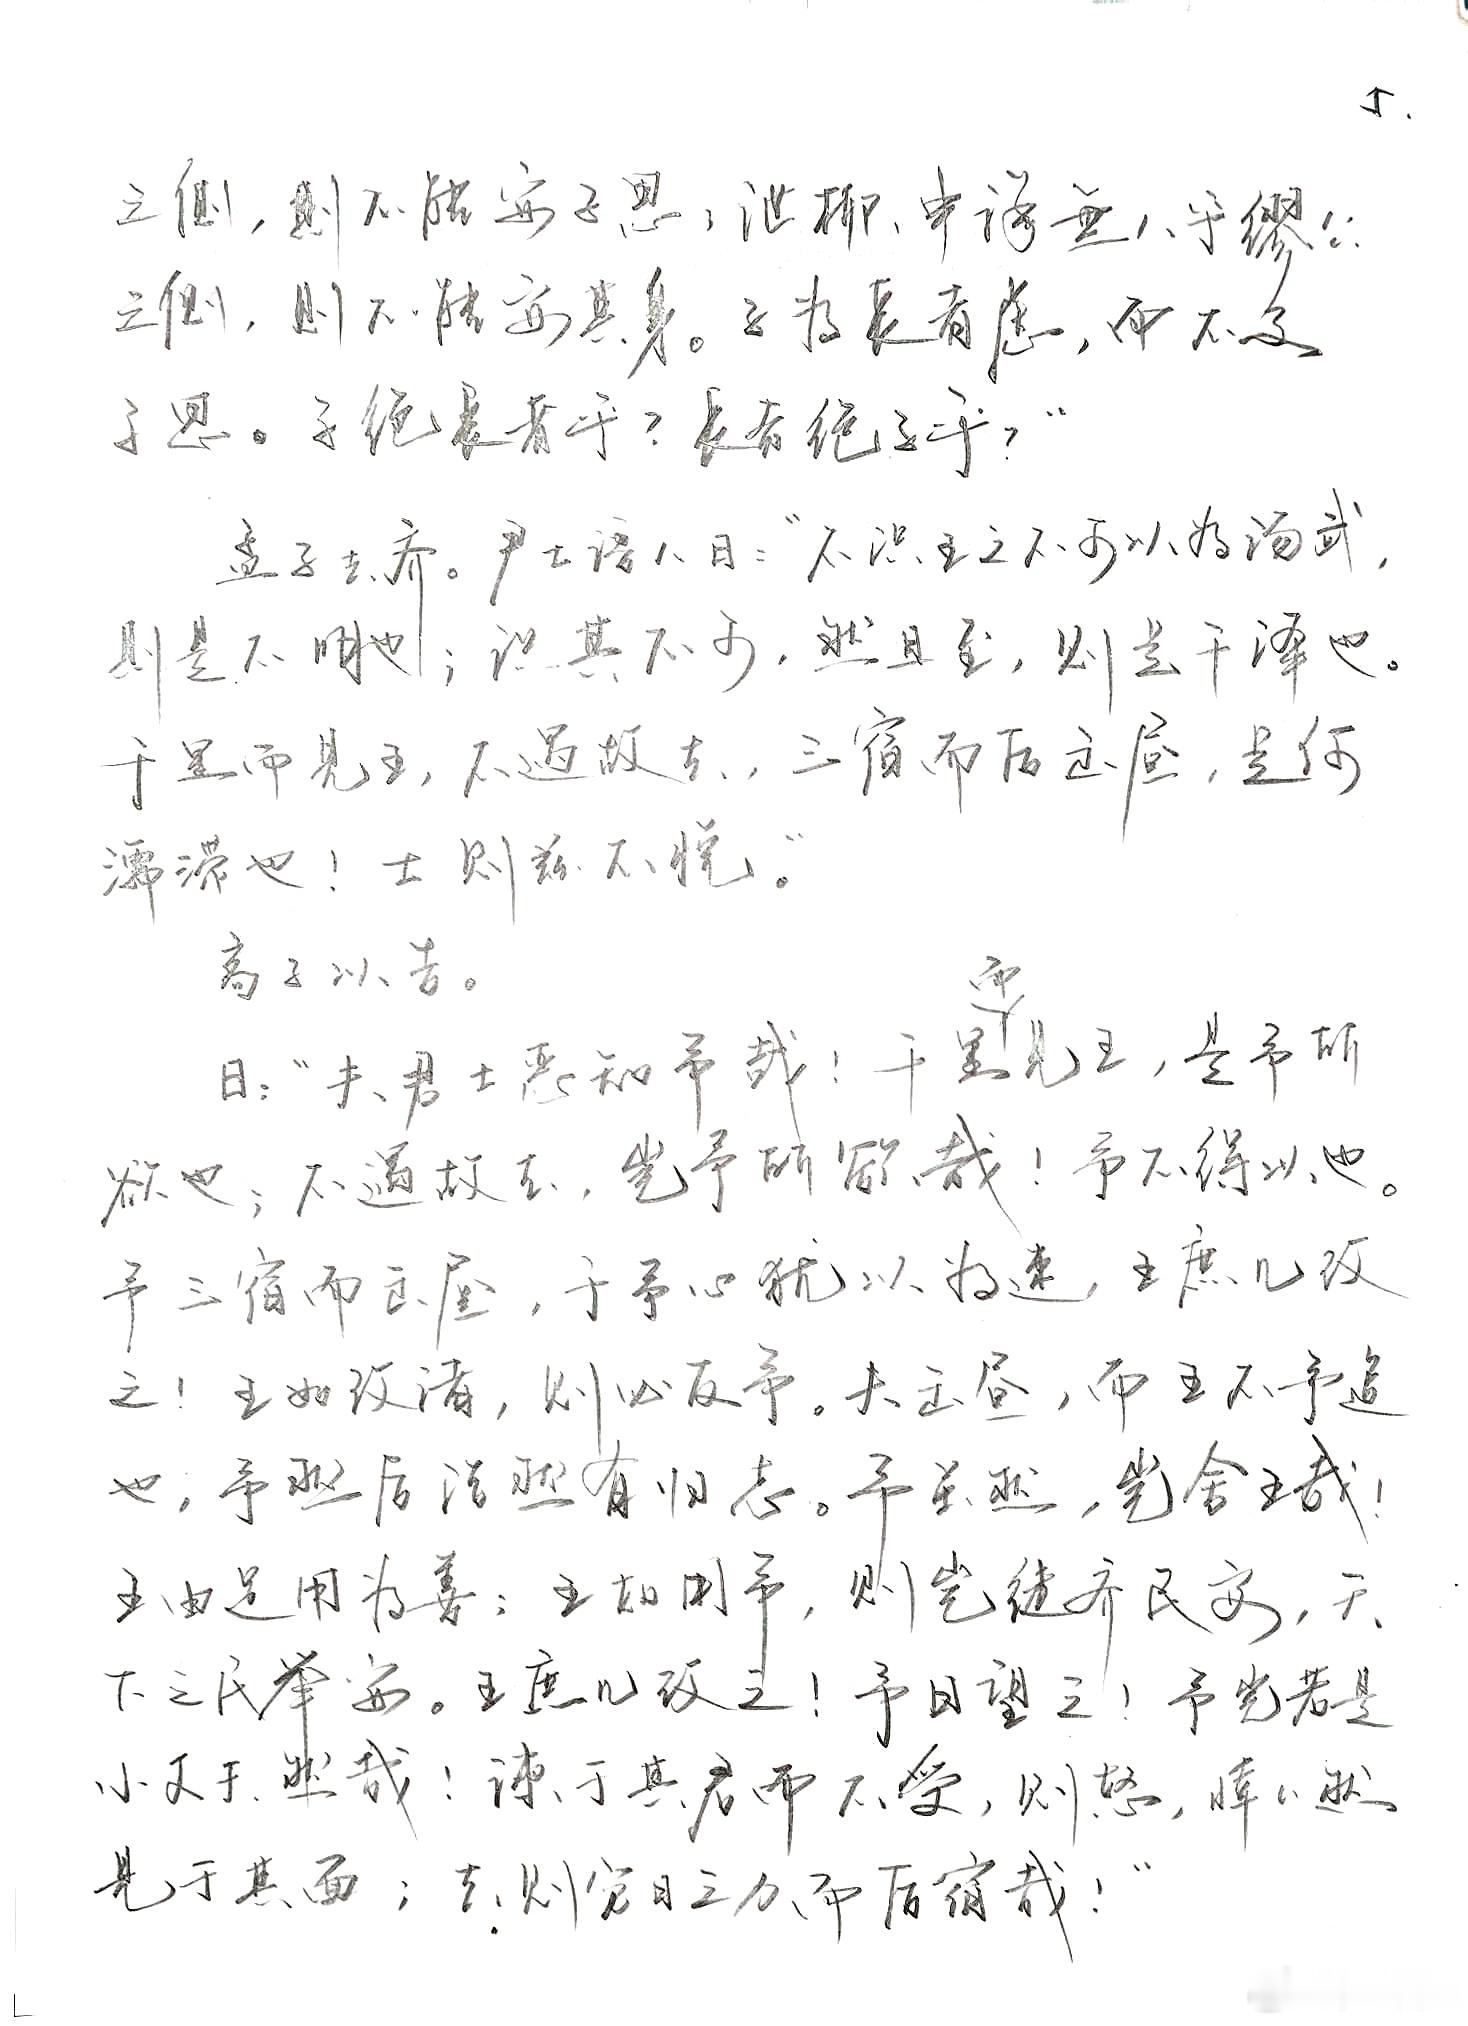 5.
之侧，则不能安子思；泄柳、申详無人乎繆公
之侧，则不能安其身。子为長者慮，而不及
子思。子绝長者乎？長者绝子乎？"
孟子去齐。尹士语人曰："不识王之不可以为汤武，
则是不明也；识其不可，然且至，则是干泽也。
千里而见王，不遇故去，三宿而后出昼，是何
濡滞也！士则兹不悦。"
高子以告。
曰："夫君士恶知予哉！千里而见王，是予所
欲也；不遇故去，岂予所欲哉！予不得以也。
予三宿而出昼，于予心犹以为速，王庶几改
之！王如改诸，则必反予。夫出昼，而王不予追
也，予然后浩然有归志。予虽然，岂舍王哉！
王由足用为善；王如用予，则岂徒齐民安，天
下之民举安。王庶几改之！予日望之！予岂若是
小丈夫然哉！谏于其君而不受，则怒，悻々然
見于其面；去则穷日之力而后宿哉！"